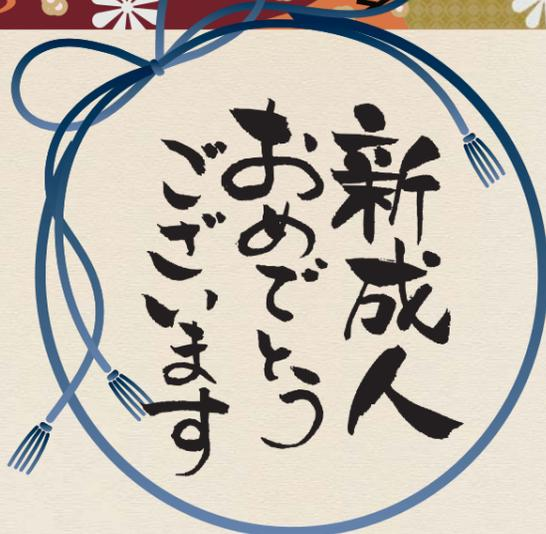 新成人
おめでとう
ございます